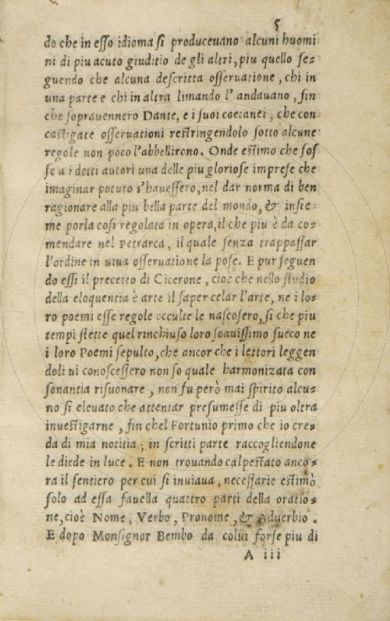 5
do che in esso idioma si produceuano alcuni huomi
ni di piu acuto giuditio de gli altri, piu quello se=
guendo che alcuna descritta osseruatione, chi in
una parte e chi in altra limando l'andauano, fin
che soprauennero Dante, e i suoi coetanei, che con
castigate osseruationi restringendolo sotto alcune
regole non poco l'abbellirono. Onde estimo che fos
se a i detti autori una delle piu gloriose imprese che
imaginar potuto s'hauessero, nel dar norma di ben
ragionare alla piu bella parte del mondo, & insie=
me porla cosi regolata in opera, il che piu è da co=
mendare nel Petrarca, il quale senza trappassar
l'ordine in uiua osseruatione la pose. E pur seguen
do essi il precetto di Cicerone, cioè che nello studio
della eloquentia è arte il saper celar l'arte, ne i lo=
ro poemi esse regole occulte le nascosero, si che piu
tempi stette quel rinchiuso loro soauissimo succo ne
i loro Poemi sepulto, che ancor che i lettori leggen
doli ui conoscessero non so quale harmonizata con
sonantia risuonare, non fu però mai spirito alcu=
no si eleuato che attentar presumesse di piu oltra
inuestigarne, fin chel Fortunio primo che io cre=
da di mia notitia, in scritti parte raccogliendone
le diede in luce. E non trouando calpestato anco=
ra il sentiero per cui si inuiaua, necessarie estimò
solo ad essa fauella quattro parti della oratio=
ne, cioè Nome, Verbo, Pronome, & Aduerbio.
E dopo Monsignor Bembo da colui forse piu di
A iii